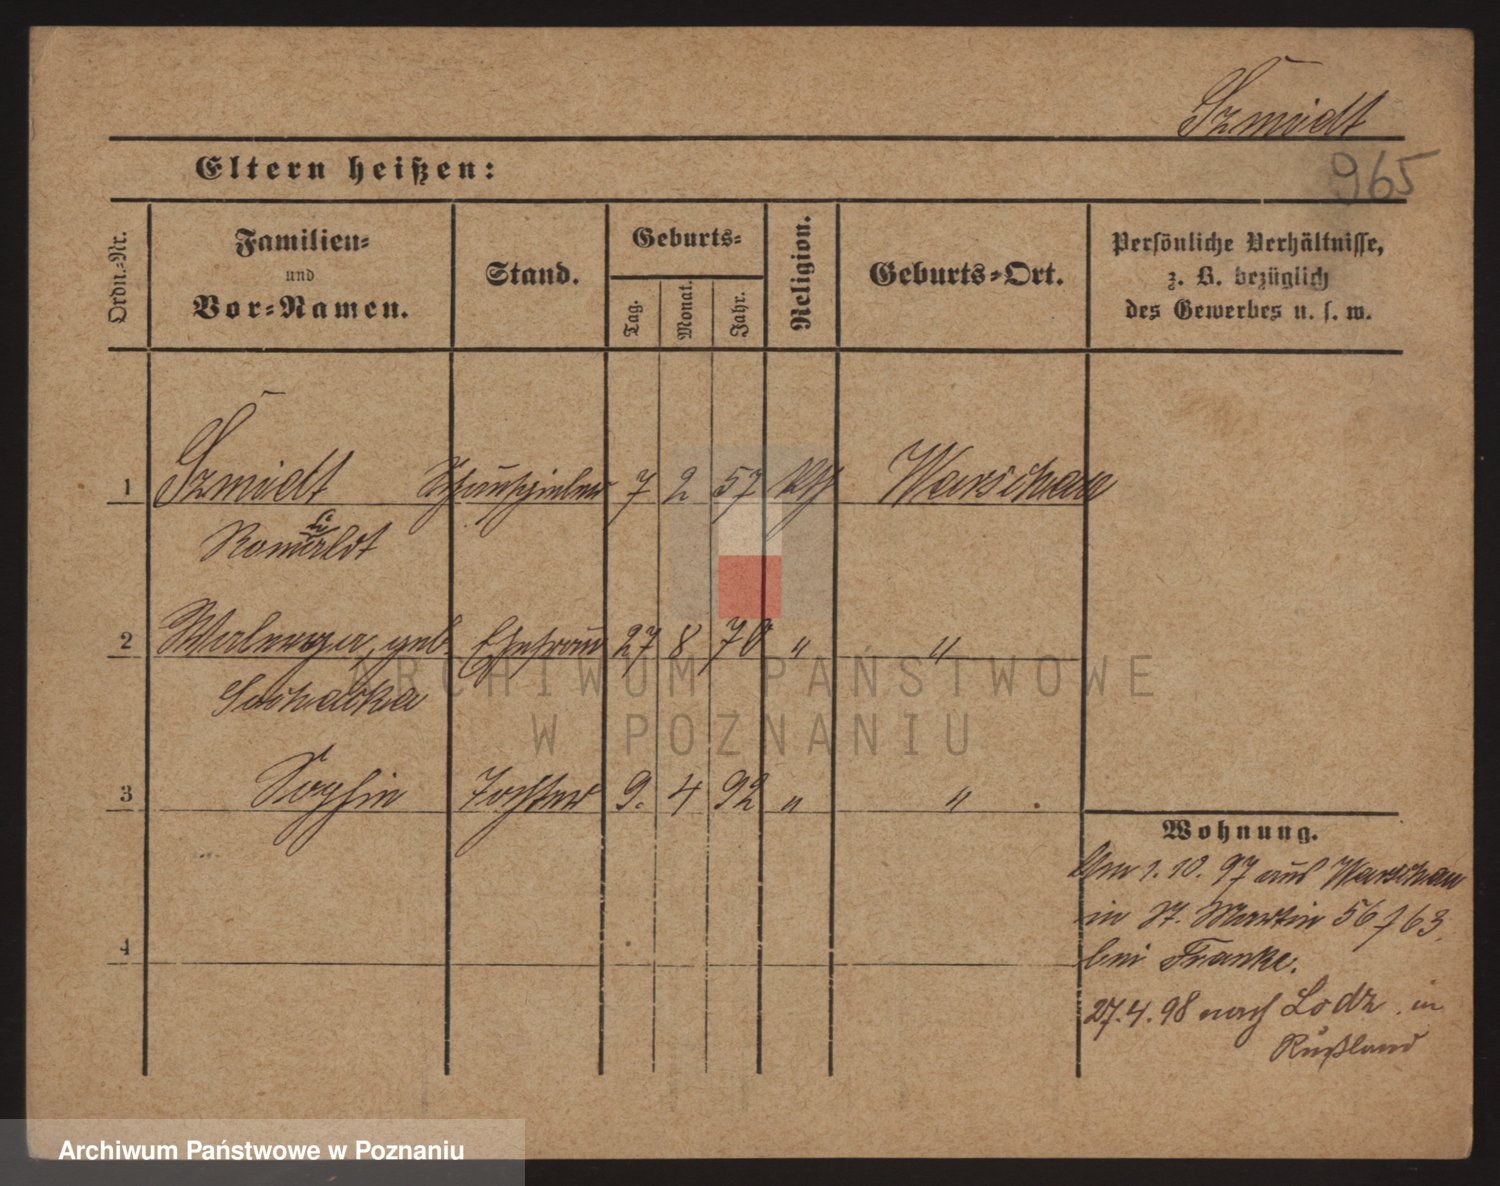 Szmidt
965
Eltern heißen:
Ordn.-Nr.
Familien-
und
Vor-Namen.
Stand.
Geburts-
Tag.
Monat.
Jahr.
Religion.
Geburts-Ort.
Persönliche Verhältnisse,
z. B. bezüglich
des Gewerbes u. s. w.
1 Szmidt Schauspieler 7 2 57 kth Warschau
Romualdt
2 geb. Ehefrau 27 8 70 " "
3 Sophie Tochter 9. 4 92 " "
4
Wohnung.
Am 1.10.97 aus Warschau
in St. Martin 56 / 63.
bei Franke.
27.4.98 nach Lodz in
Rußland
ARCHIWUM PAŃSTWOWE
W POZNANIU
Archiwum Państwowe w Poznaniu